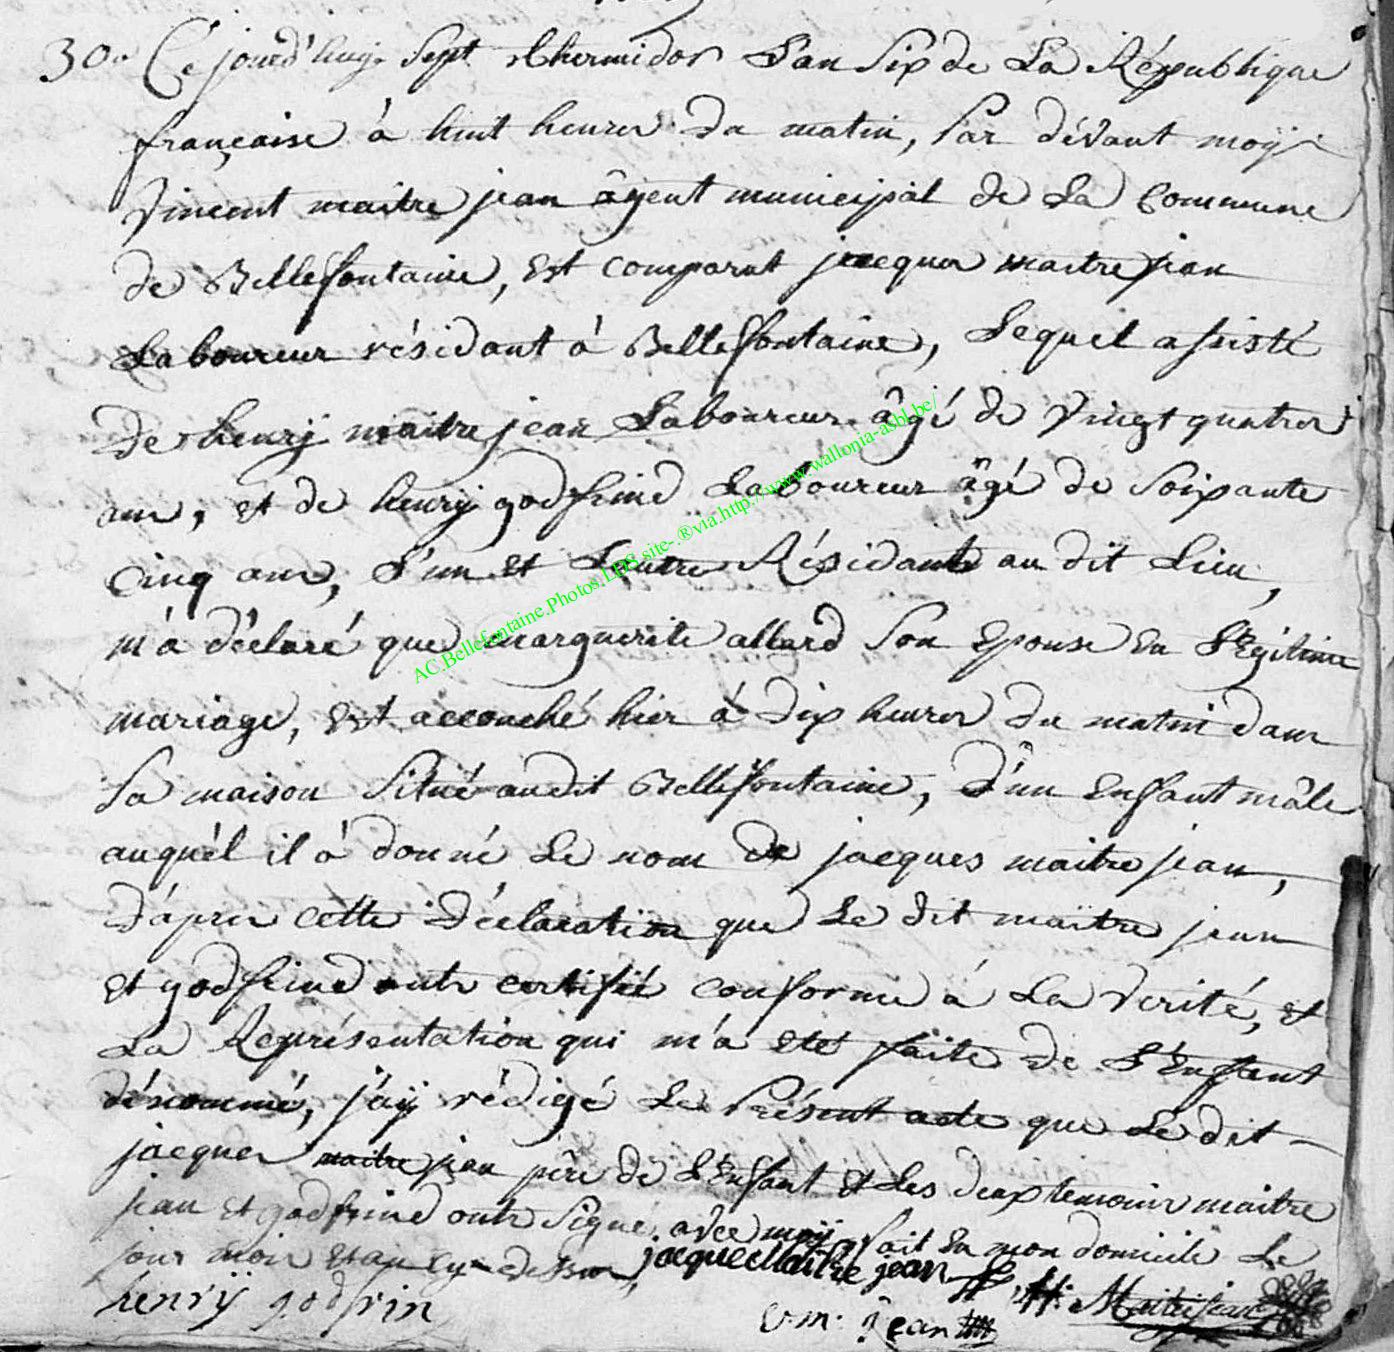 30. Ce jourd'huy sept thermidor L'an Six de La République
française à huit heures du matin, Par dévant moÿ
Vincent maitre jean âgent municipal de La Commune
de Bellefontaine, Est comparut jacques maitre jean
Laboureur résidant à Bellefontaine, Lequel assisté
de henrÿ maitre jean Laboureur âgé de Vingt quatres
ans, et de henrÿ godfrind Laboureur âgé de Soixante
Cinq ans, L'un et Lautre Résidants au dit Lieu,
m'à déclaré que marguerite allard Son Epouse En Légitime
mariage, Est accouché hier à dix heures du matin dans
Sa maison Situé audit Bellefontaine, D'un Enfant mâle
auquél il à donné Le nom de jacques maitre jean,
D'áprer cette Déclaration que Le dit maitre jean
et godfrind onts certifié conforme à La Verité, et
La Représentation qui m'à eté faite de L'Enfant
dénommé, j'áÿ rédigé Le Présent acte que Le dit
jacques maitre jean père de L'Enfant et Les deux temoins maitre
jean et godfrind onts Signé avec moÿ, fait En mon domicile Le
jour mois et an cy-dessus, jacque Maitre jean
henrÿ godfrin v.m. jean H. Maitrejean
AC.Bellefontaine.Photos.LDG.site-.®via.http://www.wallonia-asbl.be/